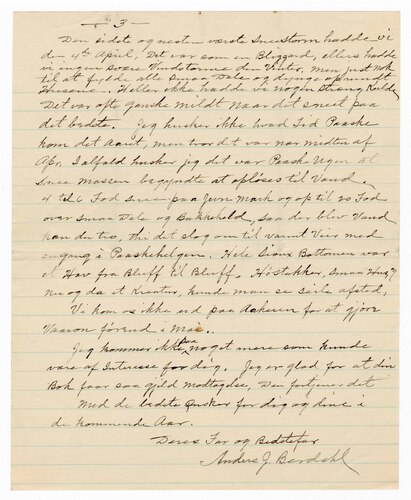 - 3 -
Den sidste og næsten værste Sneestorm hadde Vi
den 4th April, Det var som en Blizzard, ellers hadde
vi ingen svære Vindstorme den Vinter, men just nok
til at fylde alle Smaa Dale og dynge op rundt
Husene. Heller ikke hadde vi nogen Streng Kulde
Det var ofte ganske mildt naar det sneet paa
det bedste. Jeg husker ikke hvad Tid Paaske
kom det Aaret, men tror det var nær midten af
Apr. Ialfald husker jeg det var Paaske Ugen at
Snee massen begyndte at opløses til Vand
4 til 6 Fod Snee paa Jevn Mark og op til 20 Fod
over Smaa Dale og Bakkeheld, saa der blev Vand
kan du tro, thi det slog om til varmt Veir med
engang i Paaskehelgen. Hele Sioux Bottomen var
et Hav fra Bluff til Bluff. Høstakker, Smaa Huse,
nu og da et Kreatur, kunde man se seile afsted,
Vi kom os ikke ud paa Aakeren for at gjøre
Vaaron førend i Mai..
Jeg kommer ikke paa noget mere som kunde
være af Interesse for dig. Jeg er glad for at din
Bok faar saa gjild Modtagelse, Den fortjener det
Med de bedste Ønsker for dig og dine i
de kommende Aar.
Deres Far og Bedstefar
Anders J. Berdahl